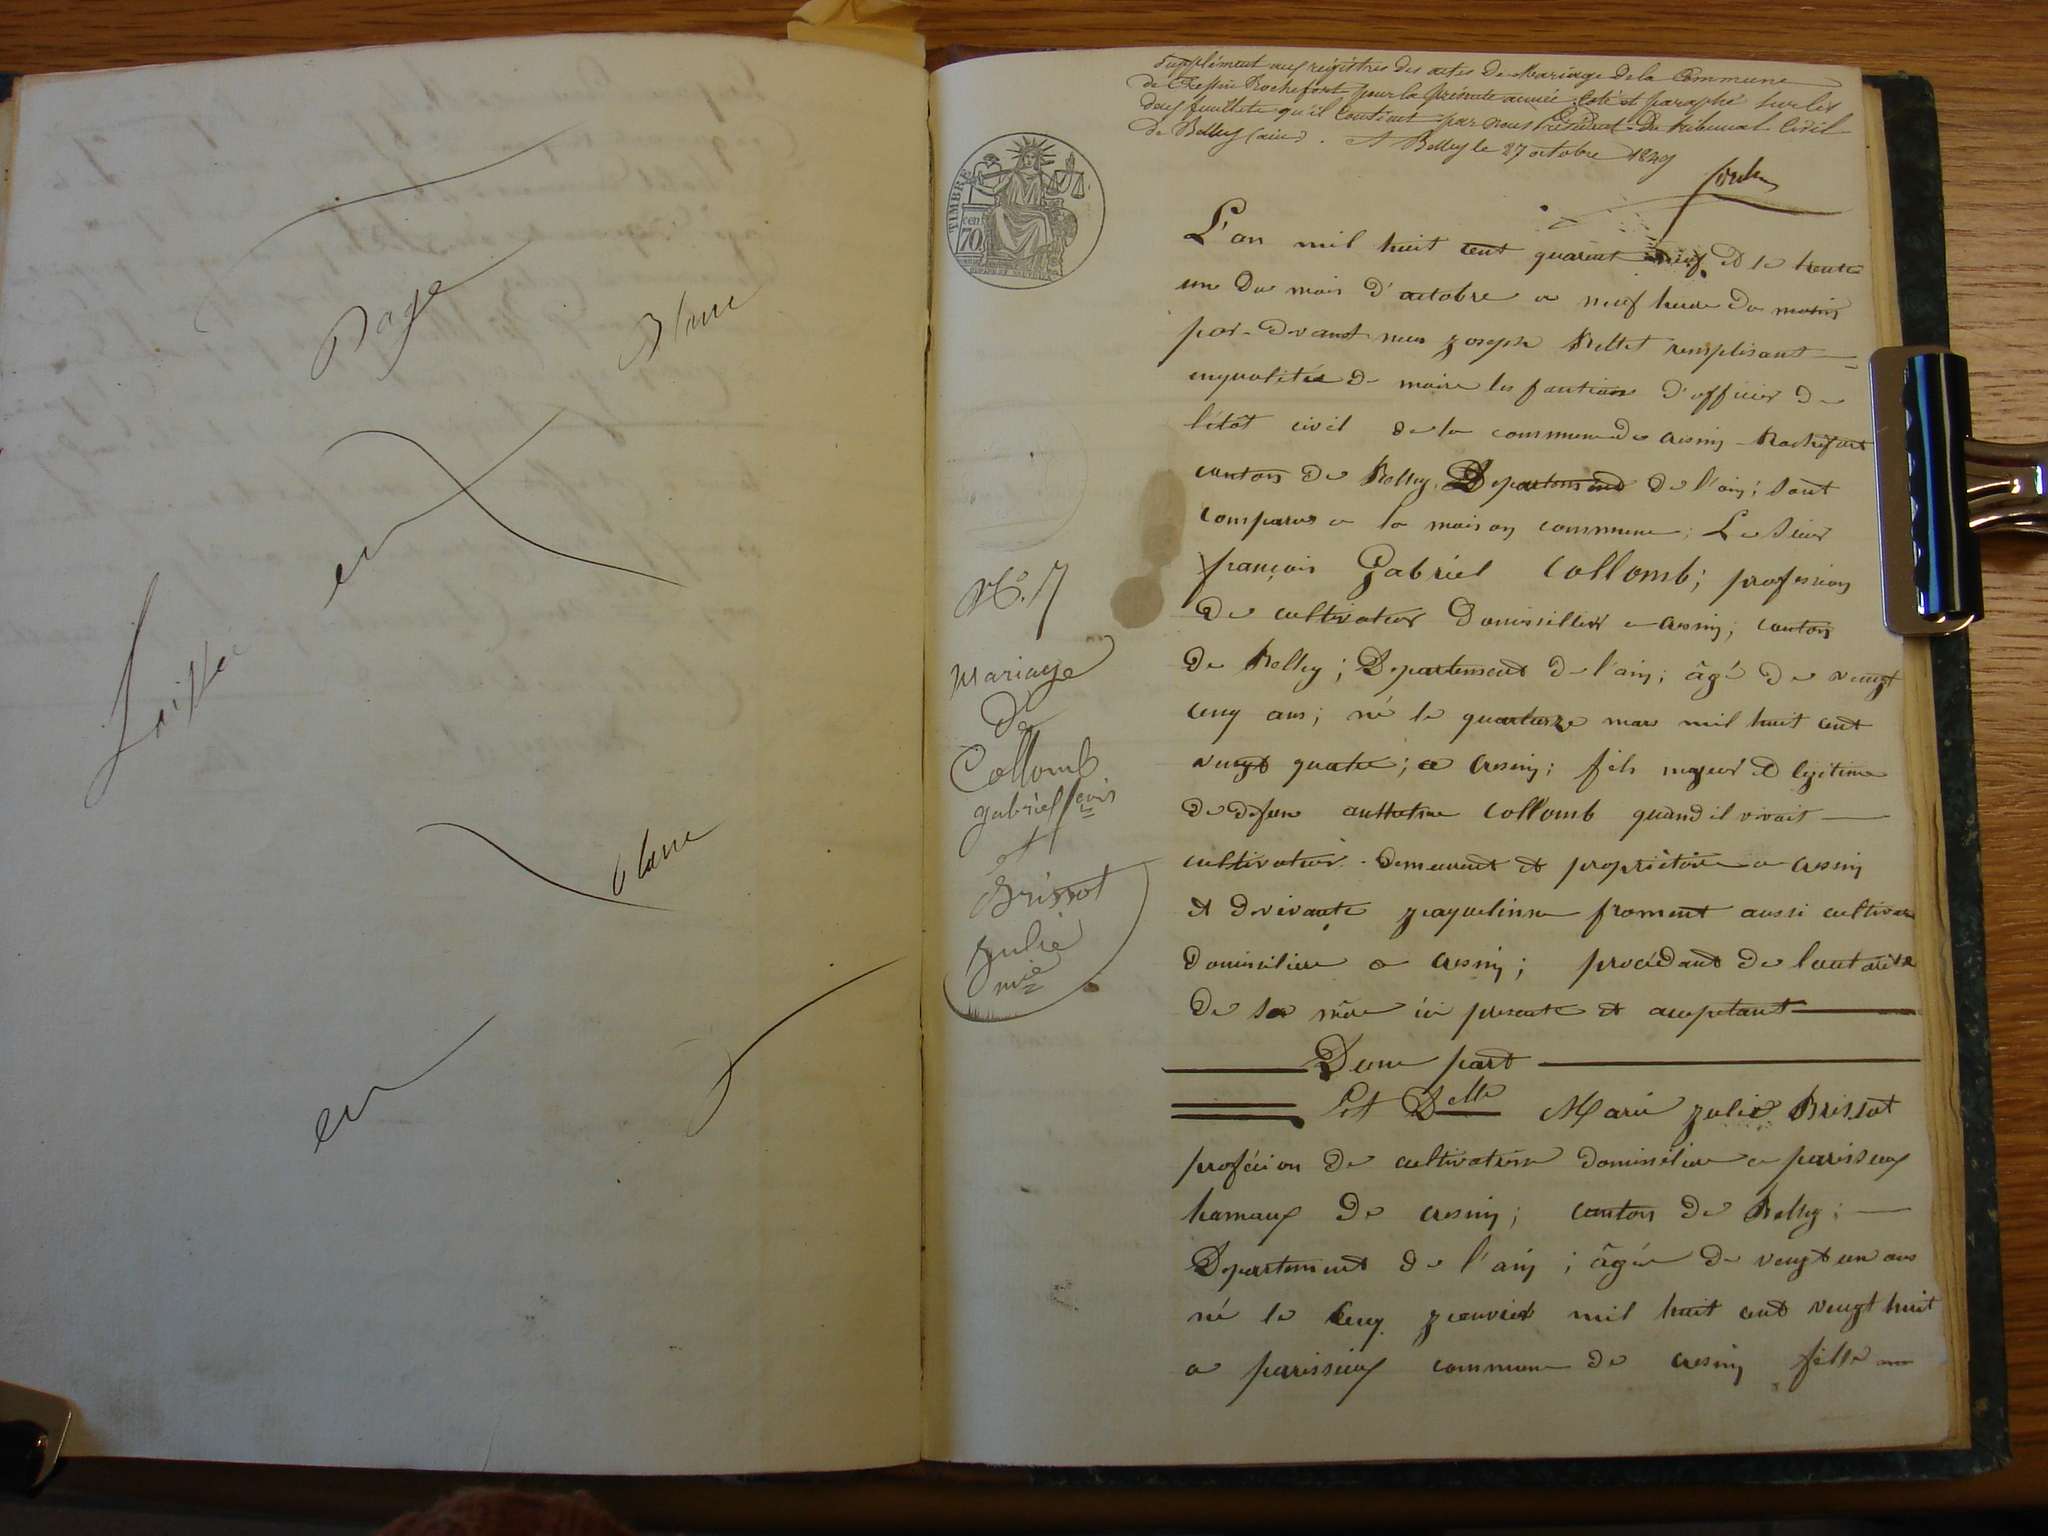 Page Blanc
en
Laissée
blanc
en
Supplément aux régistres des actes de Mariage de la Commune
de Cressin Rochefort pour la présente année coté et paraphé sur les
deux feuillets qu'il contient par nous Président du tribunal Civil
de Belley (ain). A Belley le 27 octobre 1849
TIMBRE
cent
70
L'an mil huit cent quarant neuf et le trente
une du mois d'octobre a neuf heure du matin
par-devant nous joseph Bellet remplisant
enqualitée de maire les fontions d'officier de
l'étât civil de la commune de cresin-Rochefort
canton de Belley, Departement de l'ain; sont
comparus a la maison commune; Le sieur
françois Gabriel Collomb; profession
de cultivateur Domissillier a cresin; canton
de Belley; Departement de l'ain; âgé de veingt
cinq ans; né le quartorze mar mil huit cent
veingt quatre; a Cresin; fils majeur et légitime
de defun anthelme Collomb quand il vivait
cultivateur demeurent et propriètaire a cresin
et de vivante jaqueline froment aussi cultivatrice
domissiliere a cresin; procédant de l'autorité
de sa mère ici presente et acceptant
D'une part
Et Delle Marie julie Brissot
profécion de cultivatrise domissiliere a parissieux
hamaux de cresin; canton de Belley;
Departement de l'ain; âgée de veingt un ans
né le cinq janvier mil huit cent veingt huit
a parissieux commune de cresin fille
N°. 7
Mariage
de
Collomb
gabriel fçois
et
Brissot
Julie
mie